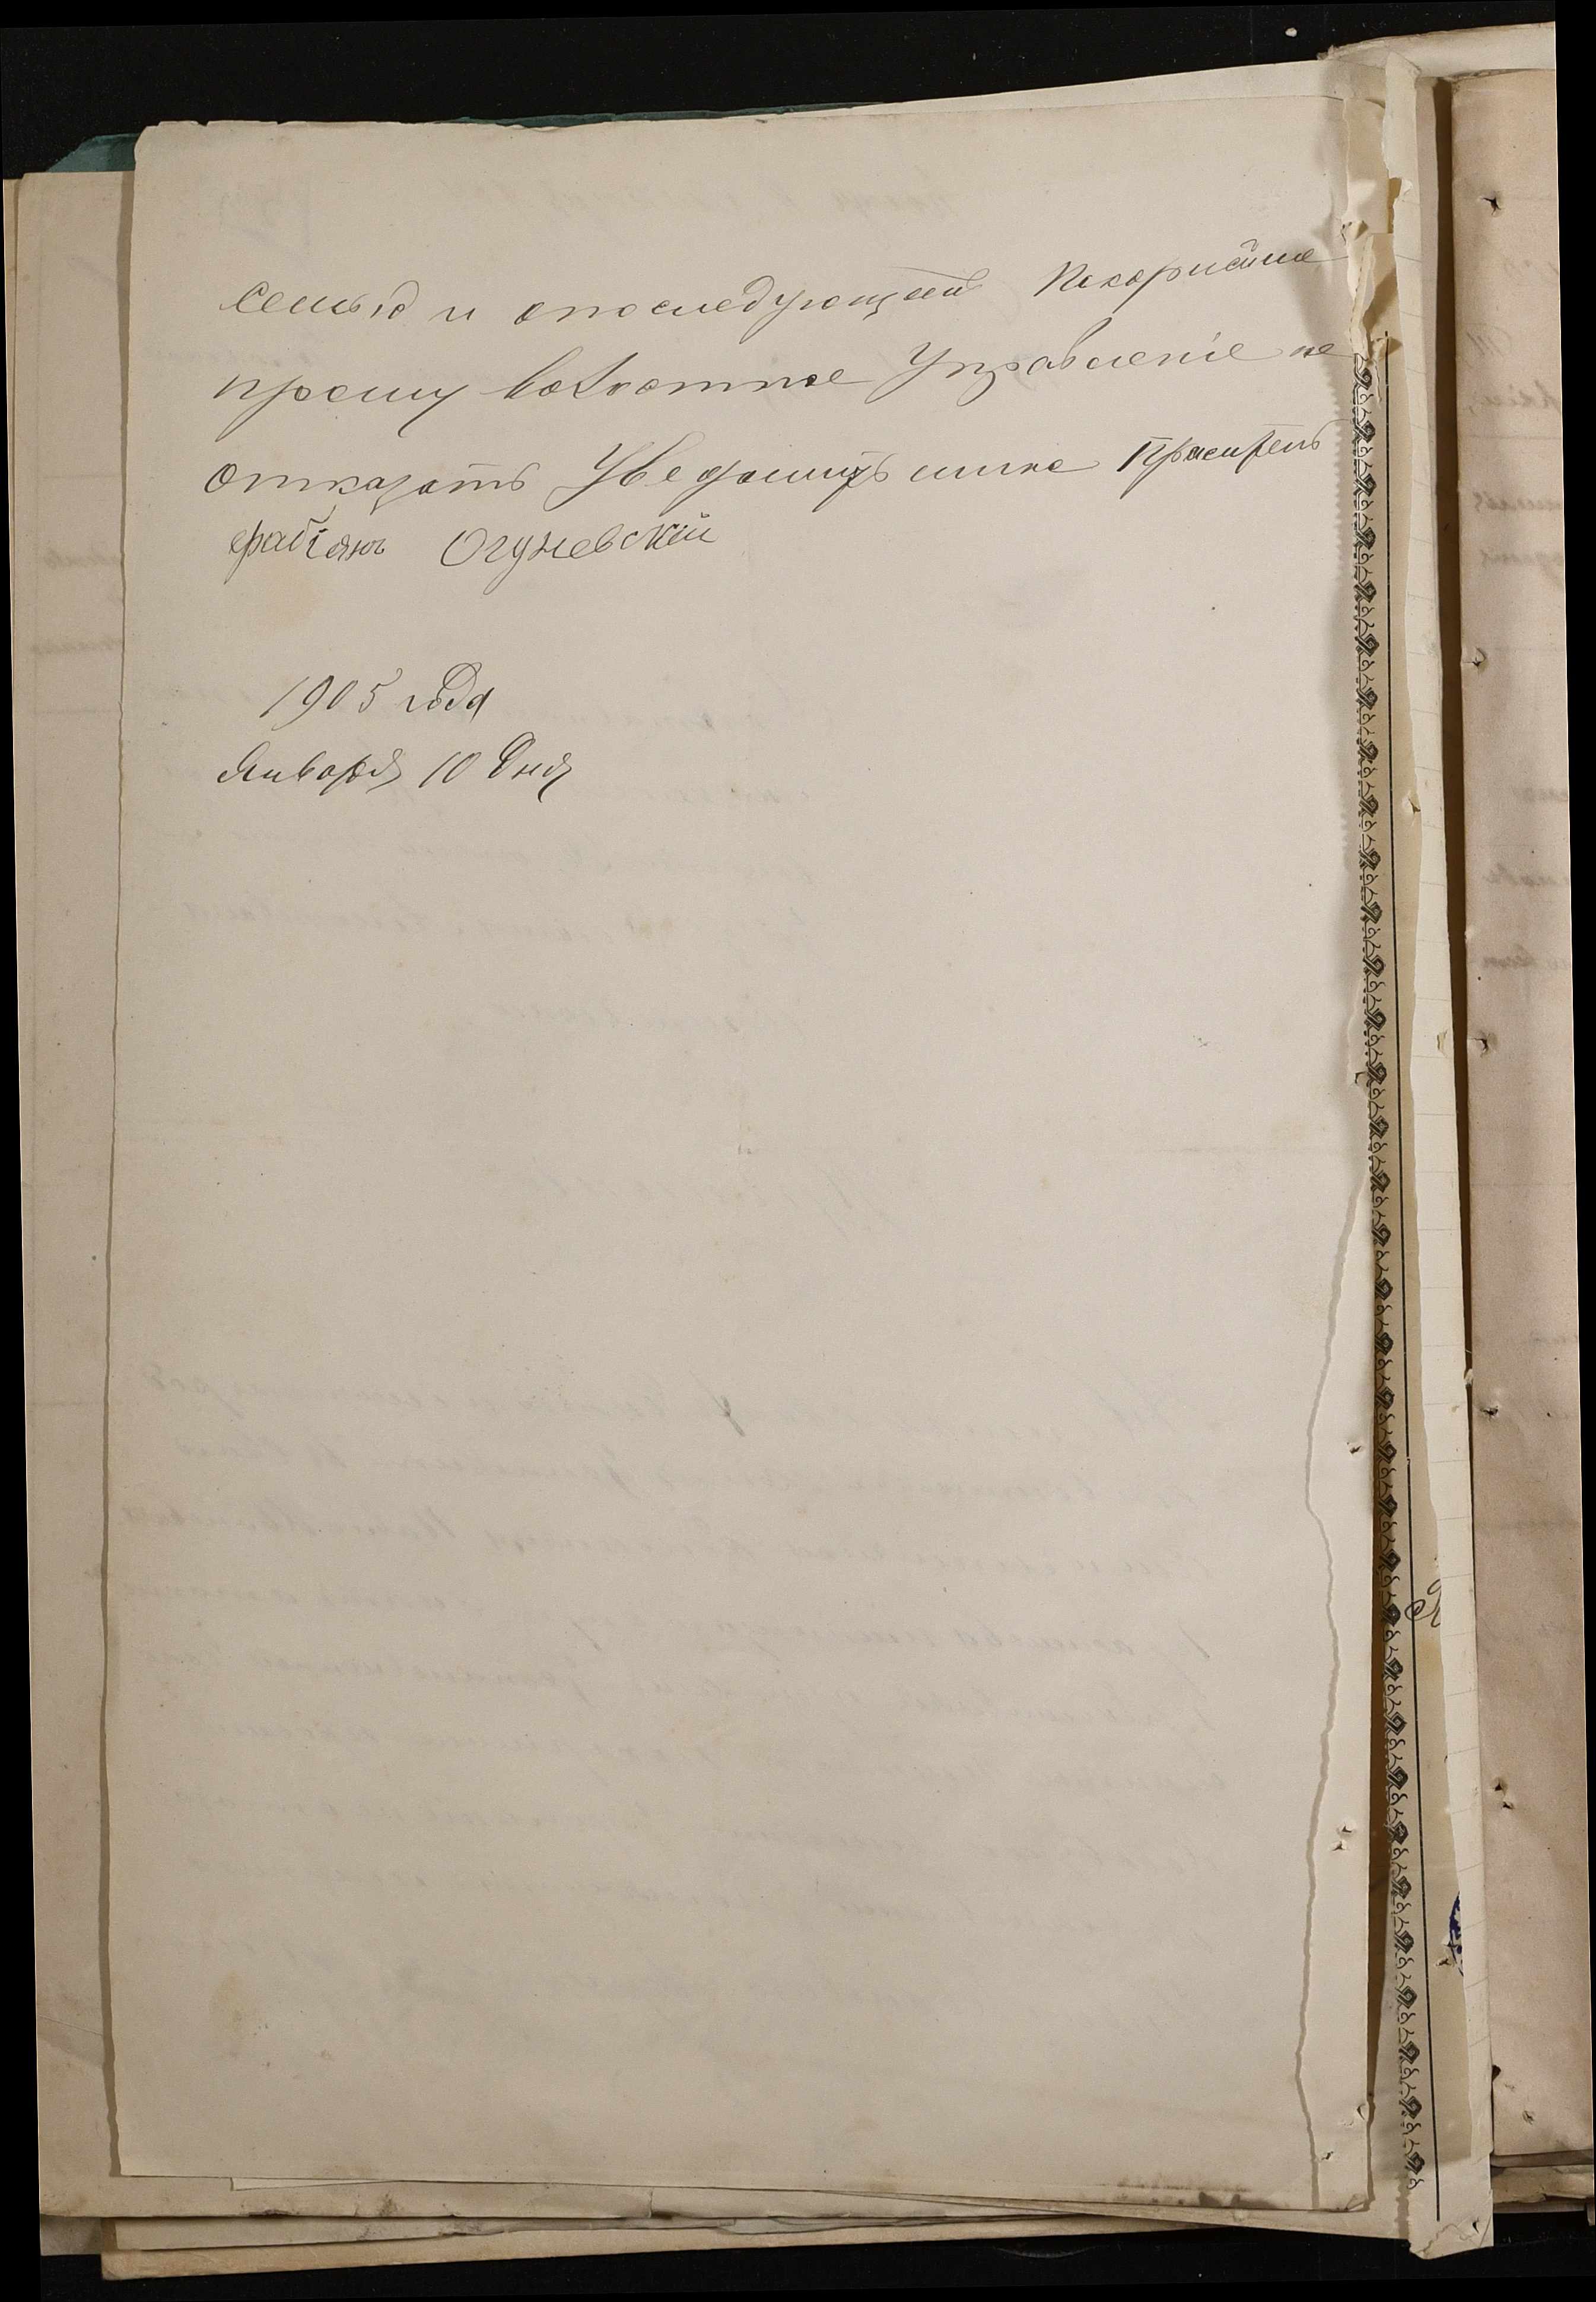 семью и опоследующемъ покорнѣше
прошу волостное Управленіе не
отказать Уведомить мине Проситель
фабіянъ Огуневскій
1905 года
Января 10 Дня